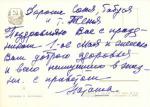 Дорогие Соня, Бабуся
и т. Женя
Поздравляю Вас с празд-
ником 1-ое Мая и желаю
Вам доброго здоровья
и всего наилучшего в жиз-
ни с приветом
Наташа